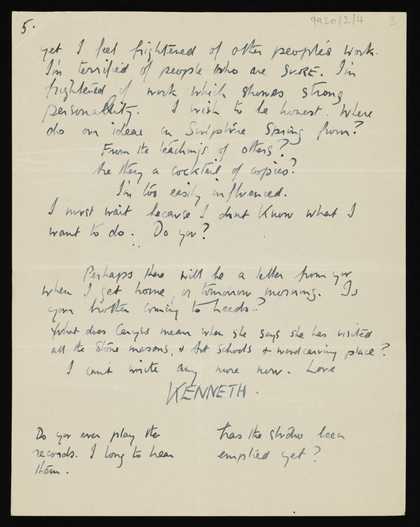 5.
9420/2/4
yet I feel frightened of other people's work.
I'm terrified of people who are SURE. I'm
frightened of work which shows strong
personality. I wish to be honest. Where
do our ideas in Sculpture Spring from?
From the teachings of others?
Are they a cocktail of copies?
I'm too easily influenced.
I must wait because I dont know what I
want to do. Do you?
Perhaps there will be a letter from you
when I get home, or tomorrow morning. Is
your brother coming to Leeds?
What does mean when she says she has visited
all the Stone masons, & Art Schools & woodcarving place?
I cant write any more now. Love
KENNETH.
Do you ever play the
records. I long to hear
them.
has the studio been
emptied yet?